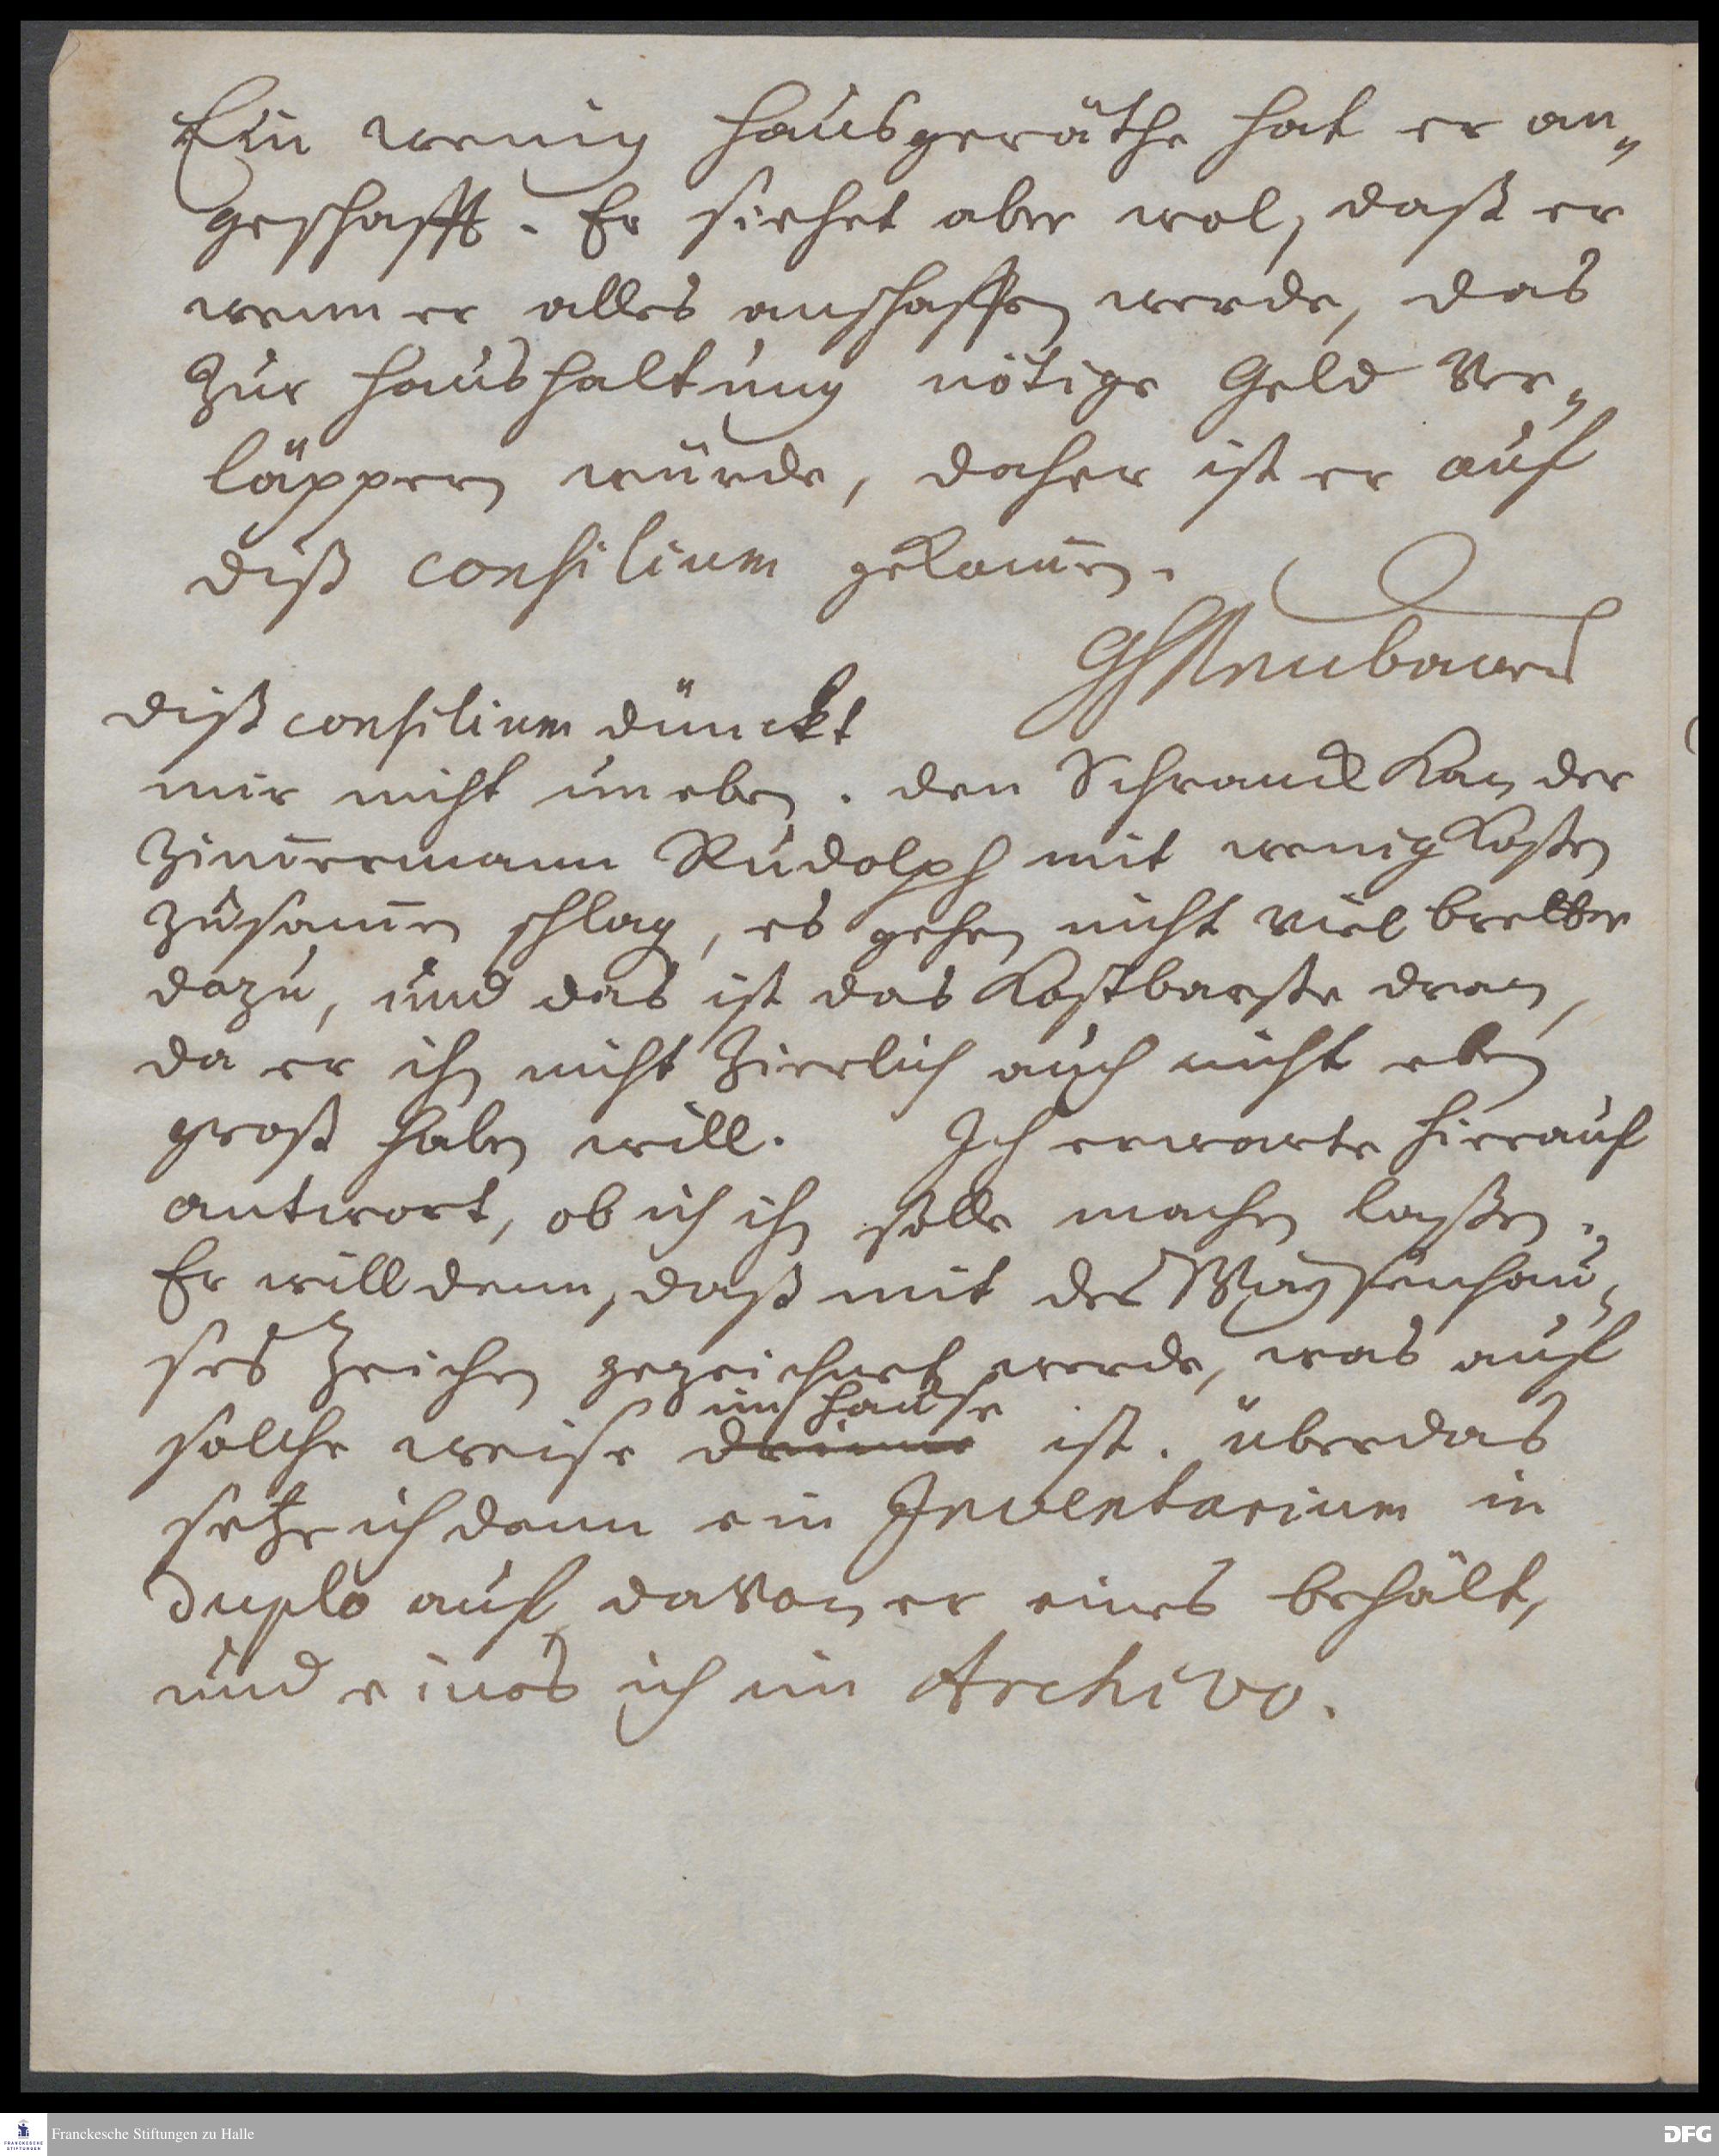 Ein wenig Hausgeräthe hat er an⸗
geschafft. Er siehet aber wol, daß er
wenn er alles anschaffen werde, das
zur Haushaltung nötige Geld ver⸗
läppern würde, daher ist er auf
diß consilium gekom̄en.
GHNeubauer
diß consilium dünckt
mir nicht uneben. den Schranck kan der
Zim̄ermann Rudolph mit wenig Kosten
zusam̄en schlagen, es gehen nicht viel bretter
dazu, und das ist das Kostbarste dran,
da er ihn nicht zierlich auch nicht eben
groß haben will. Ich erwarte hierauf
antwort, ob ich ihn solle machen laßen.
Er will denn, daß mit des Waysenhau⸗
ses Zeichen gezeichnet werde, was auf
im Hause
solche weise drinne ist. überdas
setze ich denn ein Inventarium in
duplo auf, davon er eines behält,
und eines ich im Archivo.
Franckesche Stiftungen zu Halle
FRANCKESCHE
STIFTUNGEN
DFG